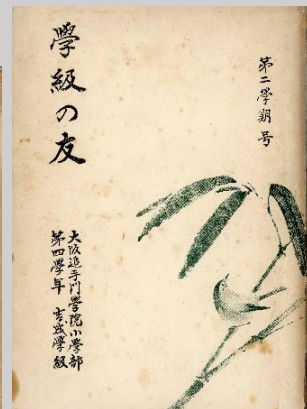 第二學期号
學級の友
大阪追手門學院小學部
第四學年 吉成學級